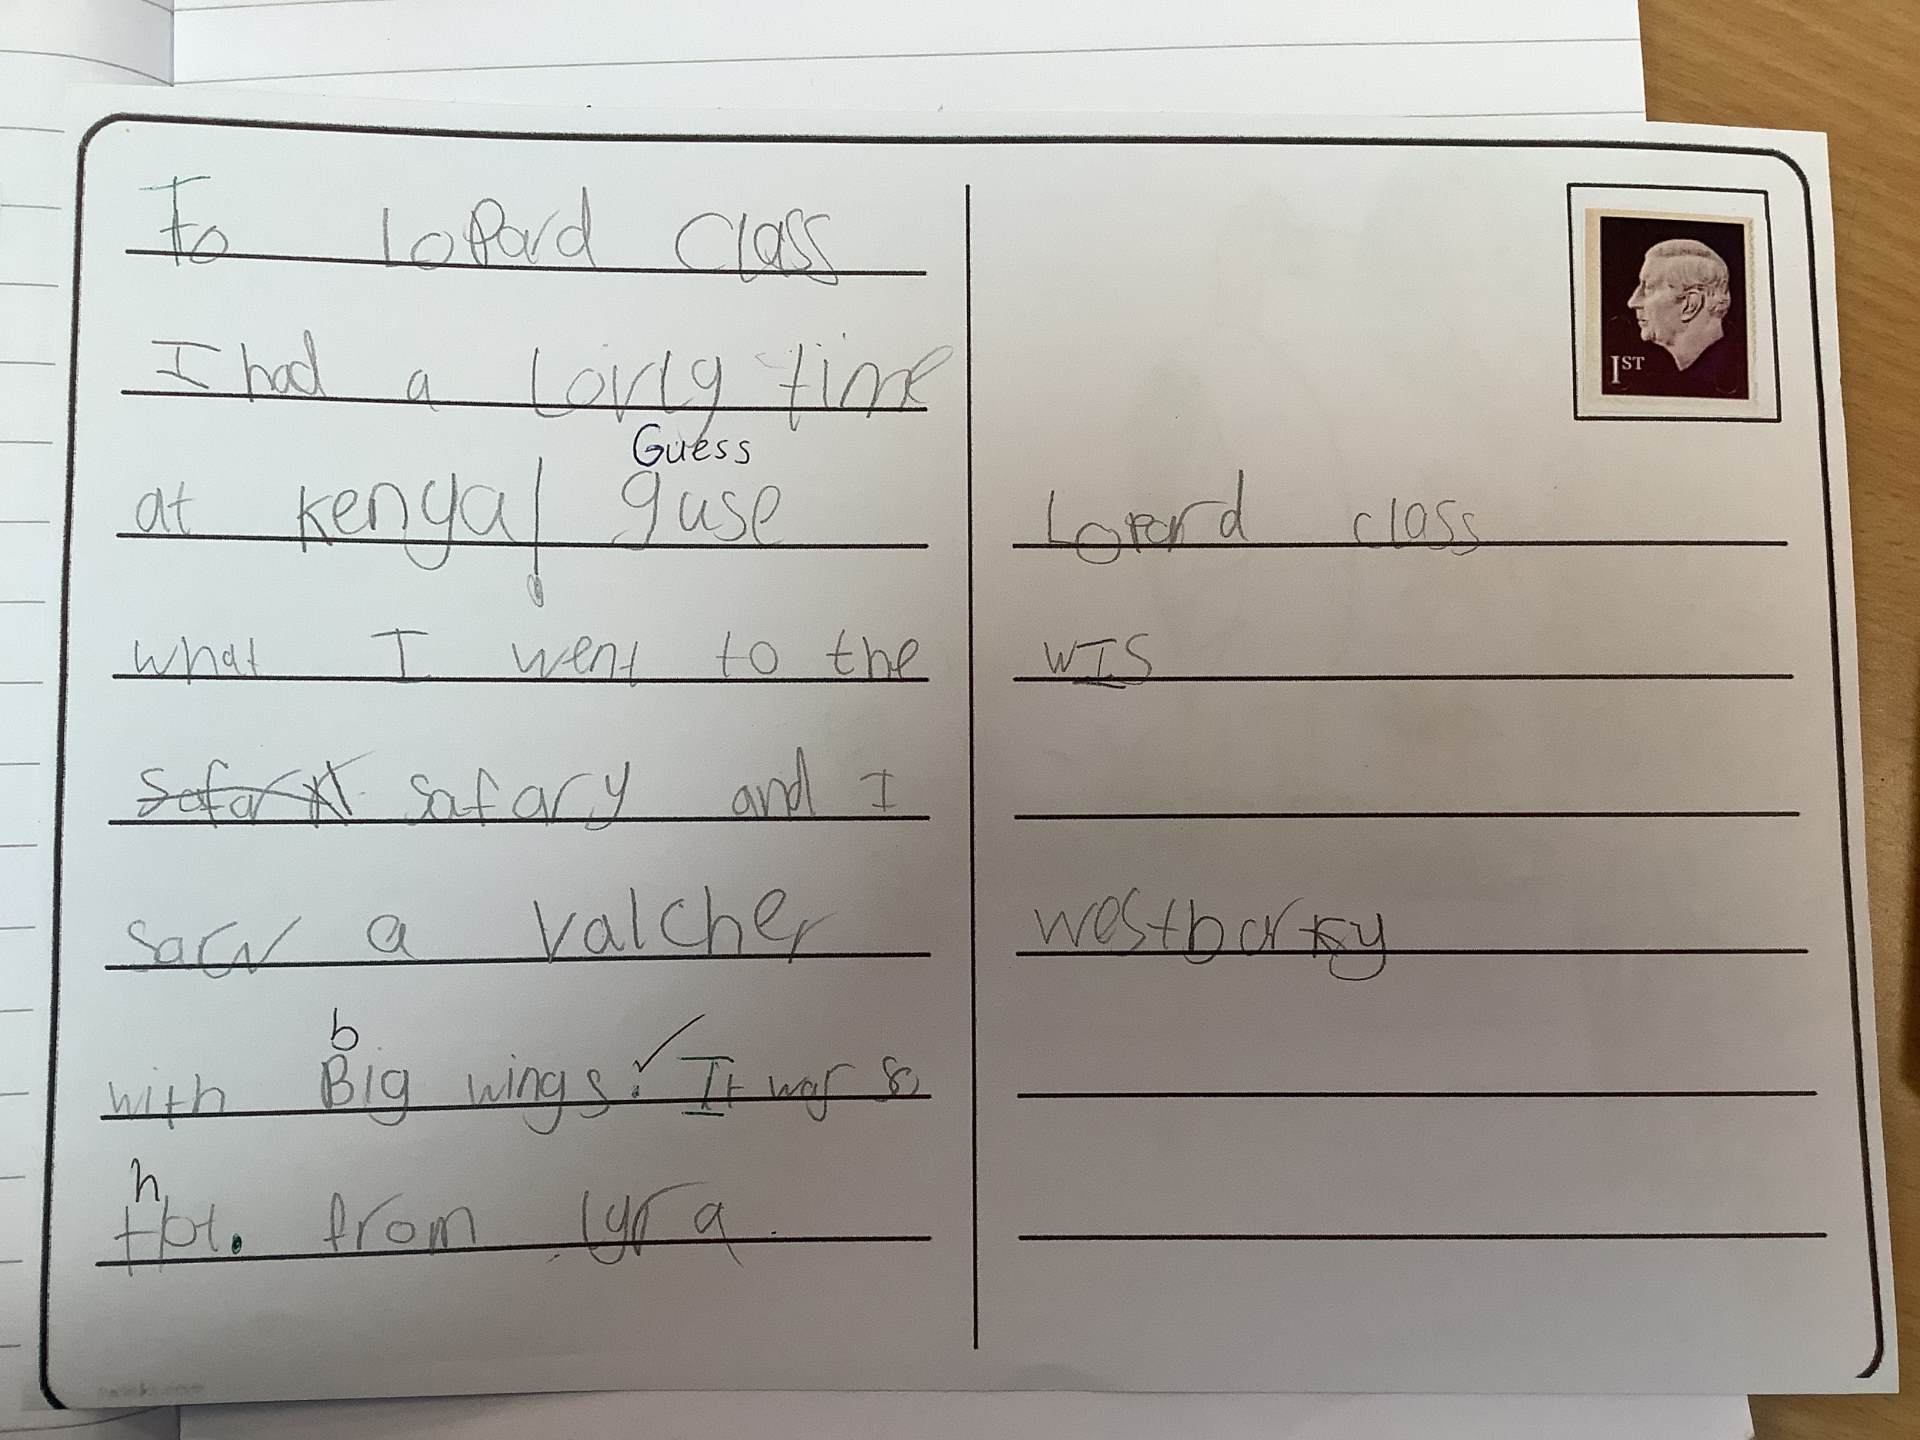 To Lopard Class
I had a Lovrly time
Guess
at kenya! guse
what I went to the
safary and I
saw a valcher
b
with Big wings. It was so
h
hot. from lyra.
1ST
Lopard class
WIS
westbarky